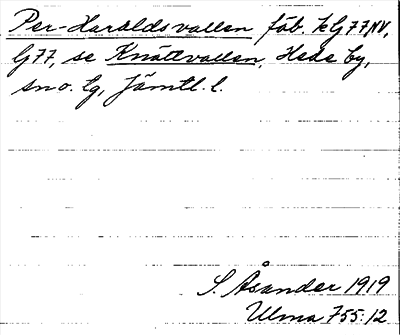 Per-Haraldsvallen fäb. k Lj 77 NV,
Lj 77, se Knättvallen, Hede by,
sn o. tg, Jämtl. l.
S. Åsander 1919
Ulma 755:12